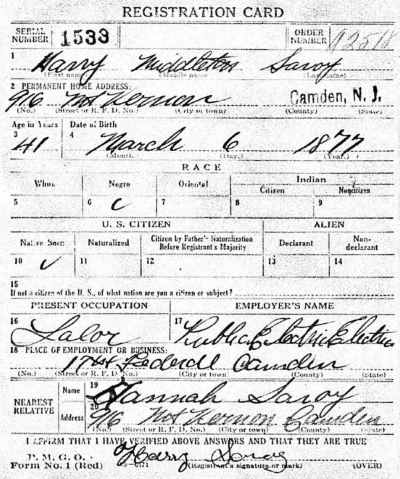 REGISTRATION CARD
SERIAL NUMBER 1533 ORDER NUMBER
1 Harry Middleton Savoy
(First name) (Middle name) (Last name)
2 PERMANENT HOME ADDRESS:
916 Mt Vernon Camden, N. J.
(No.) (Street or R. F. D. No.) (City or town) (County) (State)
Age in Years Date of Birth
3 41 4 March 6 1877
(Month.) (Day.) (Year.)
RACE
White Negro Oriental Indian
Citizen Noncitizen
5 6 7 8 9
U. S. CITIZEN ALIEN
Native Born Naturalized Citizen by Father's Naturalization Before Registrant's Majority Declarant Non-declarant
10 11 12 13 14
15
If not a citizen of the U. S., of what nation are you a citizen or subject?
PRESENT OCCUPATION EMPLOYER'S NAME
16 Labor 17 Public Electric
18 PLACE OF EMPLOYMENT OR BUSINESS:
Federal Camden
(No.) (Street or R. F. D. No.) (City or town) (County) (State)
NEAREST RELATIVE Name 19 Hannah Savoy
Address 20 916 Mt Vernon Camden
(No.) (Street or R. F. D. No.) (City or town) (County) (State)
I AFFIRM THAT I HAVE VERIFIED ABOVE ANSWERS AND THAT THEY ARE TRUE
P. M. G. O. Harry Savoy
Form No. 1 (Red) (Registrant's signature or mark) (OVER)